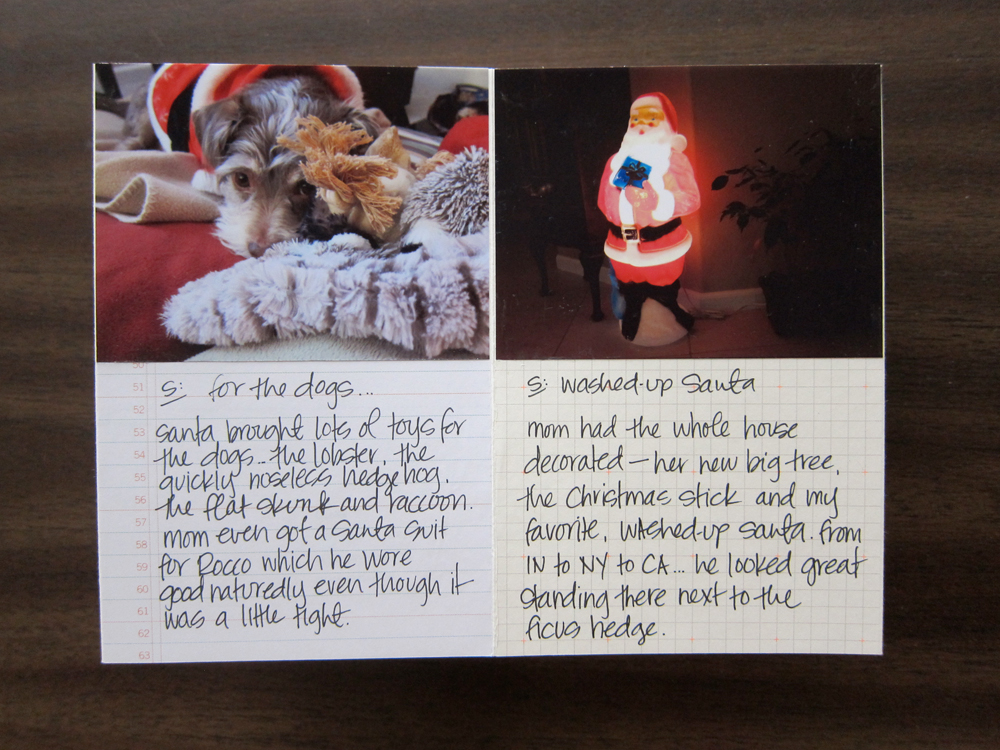 50
51
52
53
54
55
56
57
58
59
60
61
62
63
S: for the dogs...
santa brought lots of toys for
the dogs... the lobster, the
quickly noseless hedgehog,
the flat skunk and raccoon.
mom even got a santa suit
for Rocco which he wore
good naturedly even though it
was a little tight.
S: washed-up Santa
mom had the whole house
decorated – her new big tree,
the Christmas stick and my
favorite, washed-up santa. from
IN to NY to CA... he looked great
standing there next to the
ficus hedge.